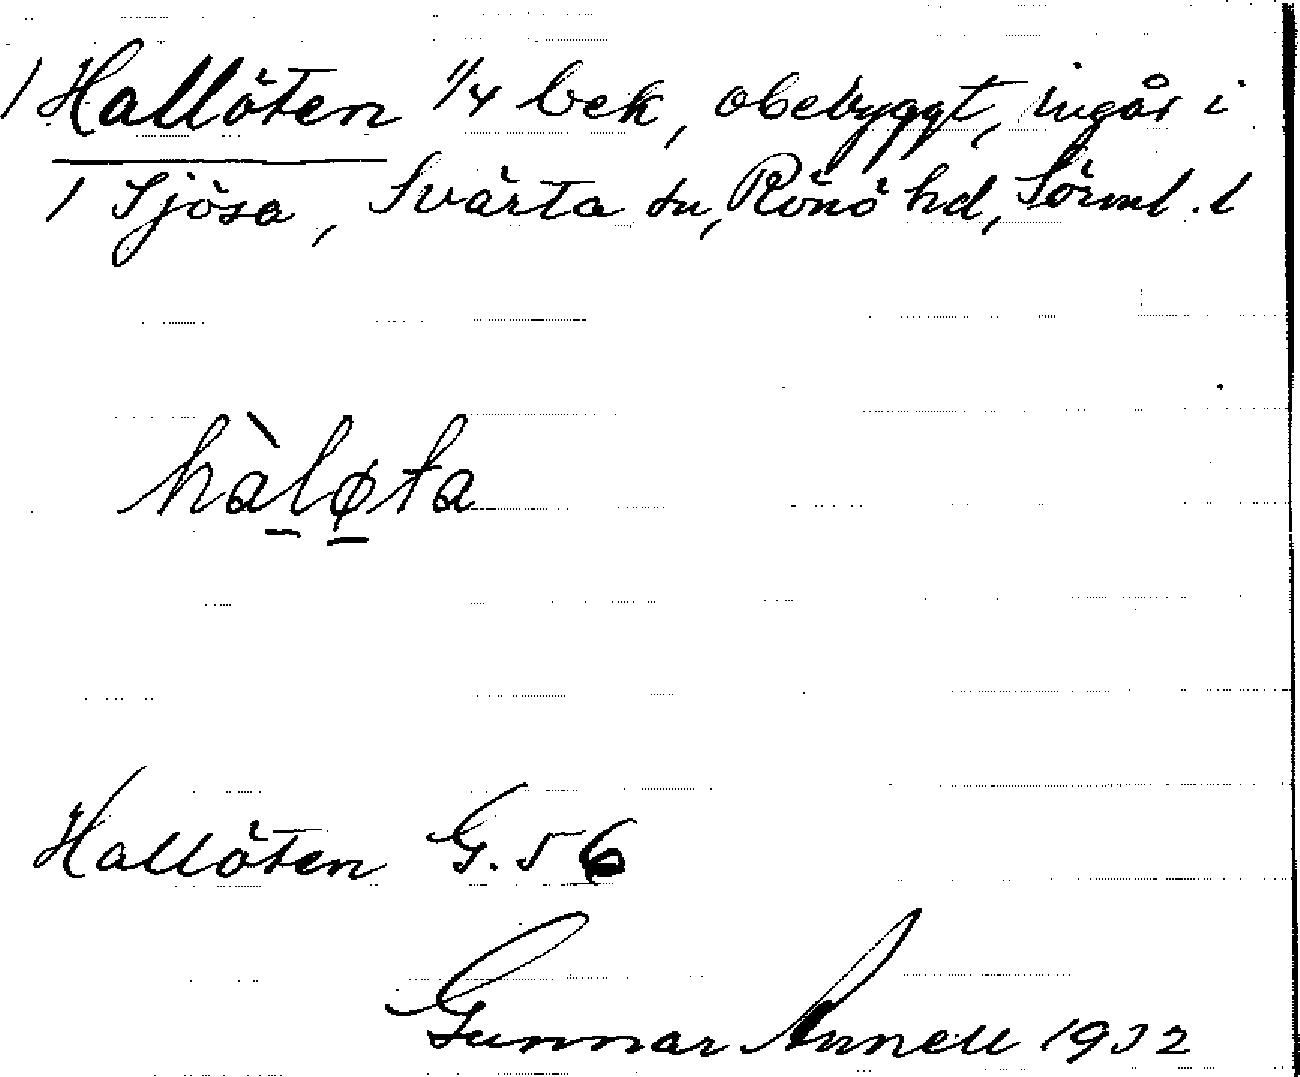 / Hallöten 1/4 bek, obebyggt, ingår i
/ Sjösa, Svärta sn, Rönö hd, Sörml. l
hàl̲ø̲ta
Hallöten G. 56
Gunnar Annell 1932